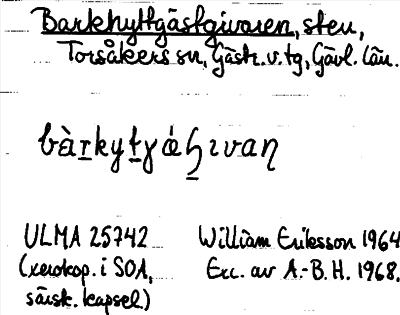 Barkhyttgästgivaren, sten,
Torsåkers sn, Gästr. v. tg, Gävl. län.
bàrkytyæ̀ʂɩvan
ULMA 25742 William Eriksson 1964
(xerokop. i SOA, Exc. av A.-B. H. 1968.
särsk. kapsel)